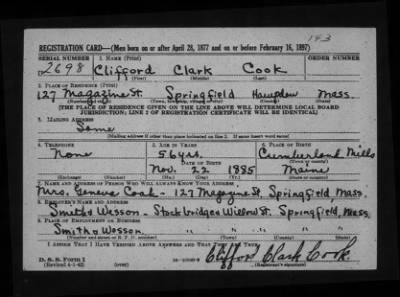 143
REGISTRATION CARD—(Men born on or after April 28, 1877 and on or before February 16, 1897)
SERIAL NUMBER 1. NAME (Print) ORDER NUMBER
U 2698 Clifford Clark Cook
(First) (Middle) (Last)
2. PLACE OF RESIDENCE (Print)
127 Magazine St. Springfield Hampden Mass
(Number and street) (Town, township, village, or city) (County) (State)
[THE PLACE OF RESIDENCE GIVEN ON THE LINE ABOVE WILL DETERMINE LOCAL BOARD
JURISDICTION; LINE 2 OF REGISTRATION CERTIFICATE WILL BE IDENTICAL]
3. MAILING ADDRESS
Same
[Mailing address if other than place indicated on line 2. If same insert word same]
4. TELEPHONE 5. AGE IN YEARS 6. PLACE OF BIRTH
None 56 yrs. Cumberland Mills
DATE OF BIRTH (Town or county)
Nov. 22 1885 Maine
(Exchange) (Number) (Mo.) (Day) (Yr.) (State or country)
7. NAME AND ADDRESS OF PERSON WHO WILL ALWAYS KNOW YOUR ADDRESS
Mrs. Geneva Cook - 127 Magazine St, Springfield, Mass.
8. EMPLOYER'S NAME AND ADDRESS
Smith & Wesson - Stockbridge & Willow St. Springfield, Mass.
9. PLACE OF EMPLOYMENT OR BUSINESS
Smith & Wesson " " " "
(Number and street or R. F. D. number) (Town) (County) (State)
I AFFIRM THAT I HAVE VERIFIED ABOVE ANSWERS AND THAT THEY ARE TRUE.
D. S. S. Form 1
(Revised 4-1-42) (over) Clifford Clark Cook
(Registrant's signature)